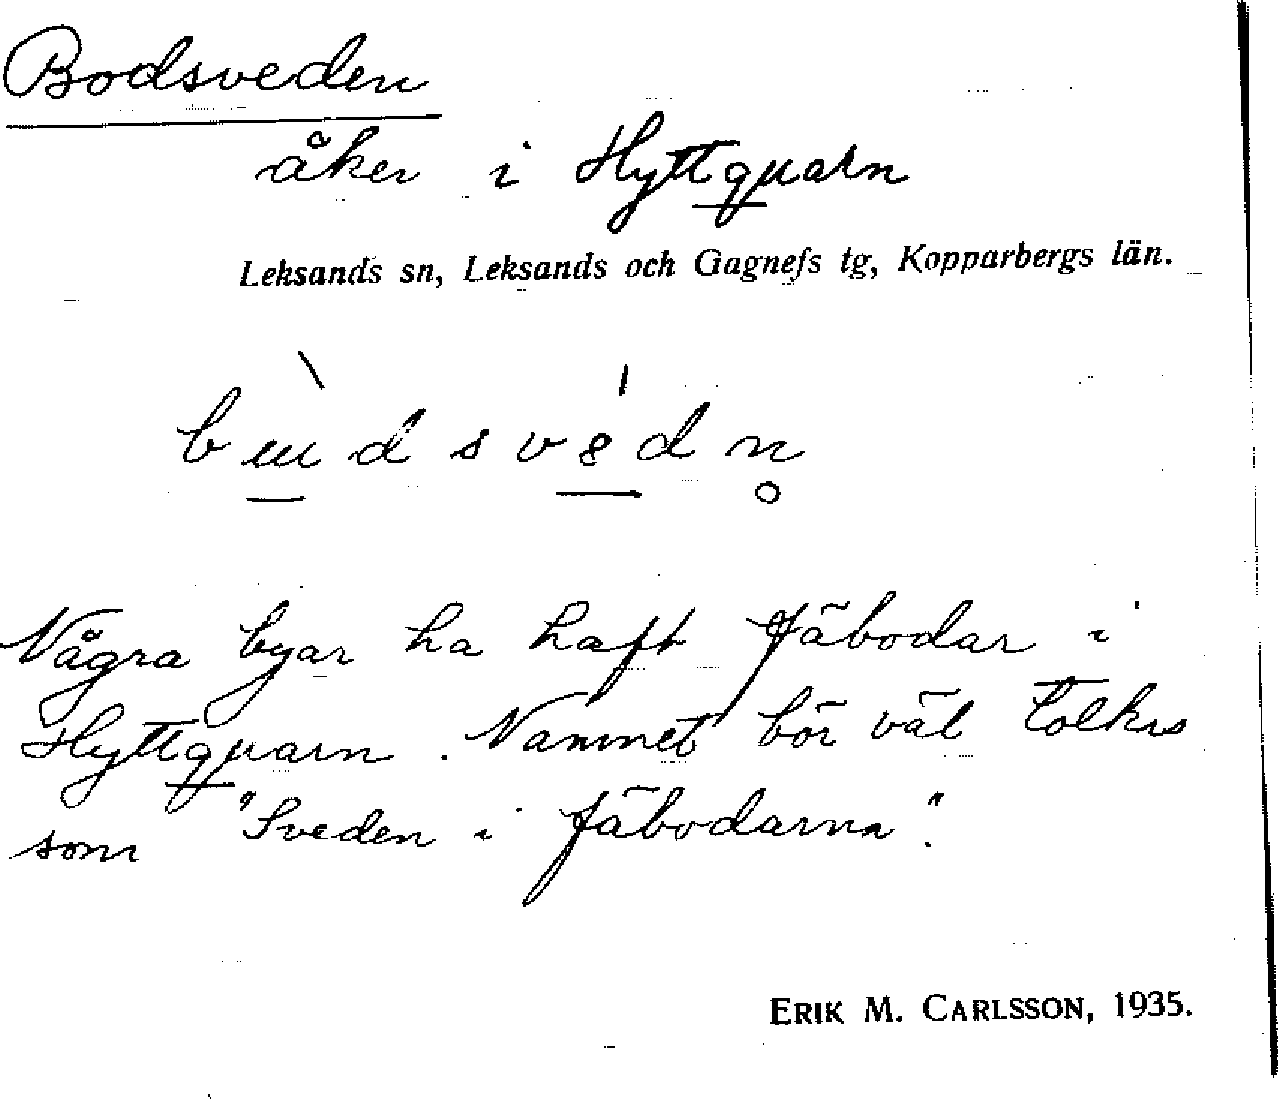 Bodsveden
åker i Hyttquarn
Leksands sn, Leksands och Gagnefs tg, Kopparbergs län.
Några byar ha haft fäbodar i
Hyttquarn. Namnet bör väl tolkas
som "Sveden i fäbodarna".
ERIK M. CARLSSON, 1935.